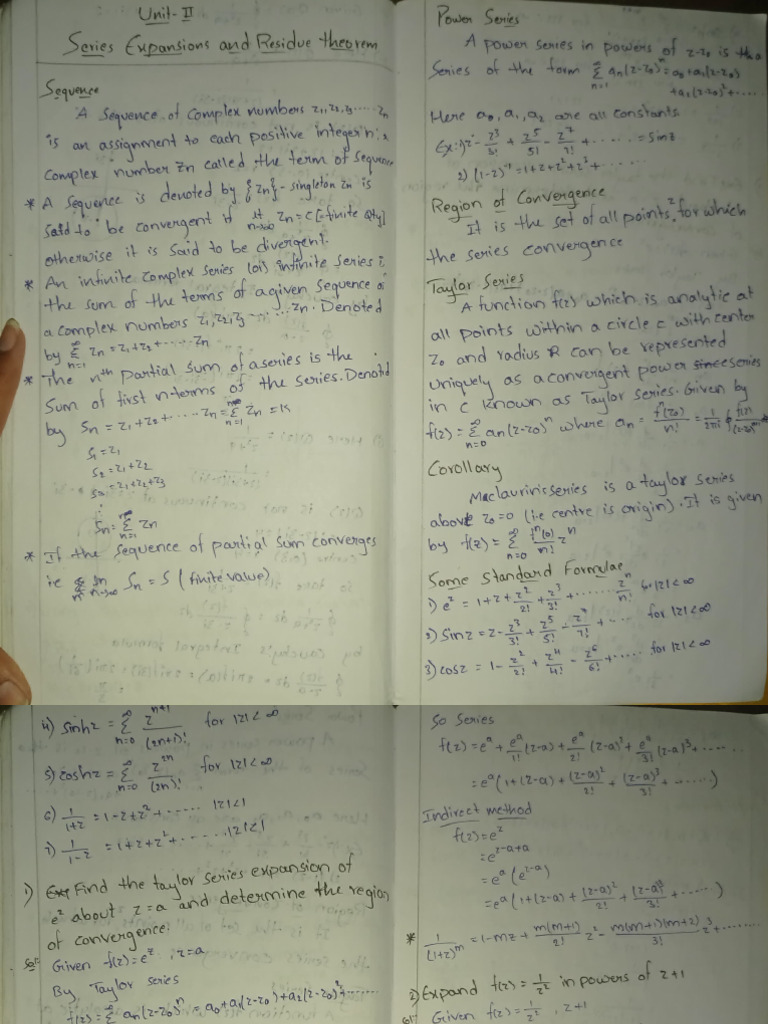 Unit-II
Series Expansions and Residue theorem
Sequence
A sequence of complex numbers z₁,z₂,z₃.....zₙ
is an assignment to each positive integer 'n', a
complex number zₙ called the term of sequence
* A sequence is denoted by {zₙ} - singleton zₙ is
said to be convergent if lt n→∞ zₙ = c [-finite qty]
otherwise it is said to be divergent.
* An infinite complex series (or) infinite series is
the sum of the terms of a given sequence of
a complex numbers z₁,z₂,z₃.......zₙ. Denoted
by ∞Σn=1 zₙ = z₁+z₂+......zₙ
* The nth partial sum of a series is the
sum of first n-terms of the series. Denoted
by Sₙ = z₁+z₂+.....zₙ = Σn=1 zₙ = K
S₁=z₁
S₂=z₁+z₂
S₃=z₁+z₂+z₃
⋮
Sₙ = Σn=1 zₙ
* If the sequence of partial sum converges
ie n→∞ Sₙ = S (finite value)
Power Series
A power series in powers of z-z₀ is the
series of the form ∞Σn=1 aₙ(z-z₀)ⁿ = a₀+a₁(z-z₀)
+a₂(z-z₀)²+.....
Here a₀, a₁, a₂ are all constants
Ex:-1) z - z³/3! + z⁵/5! - z⁷/7! + ...... = sin z
2) (1-z)⁻¹ = 1+z+z²+z³+......
Region of Convergence
It is the set of all points z for which
the series convergence
Taylor Series
A function f(z) which is analytic at
all points within a circle c with center
z₀ and radius R can be represented
uniquely as a convergent power series
in c known as Taylor series. Given by
f(z) = ∞Σn=0 aₙ(z-z₀)ⁿ where aₙ = fⁿ(z₀)/n! = 1/2πi ∮
Corollary
Maclaurin's series is a taylor series
above z₀=0 (i.e centre is origin). It is given
by f(z) = ∞Σn=0 fⁿ(0)/n! zⁿ
Some Standard Formulae
1) eᶻ = 1+z+z²/2!+z³/3!+.......zⁿ/n! for |z|<∞
2) sin z = z - z³/3! + z⁵/5! - z⁷/7! + ... for |z|<∞
3) cos z = 1 - z²/2! + z⁴/4! - z⁶/6! + ..... for |z|<∞
4) sinh z = ∞Σn=0 zⁿ⁺¹/(2n+1)! for |z|<∞
5) cosh z = ∞Σn=0 z²ⁿ/(2n)! for |z|<∞
6) 1/1+z = 1-z+z²+...... |z|<1
7) 1/1-z = 1+z+z²+...... |z|<1
1) Find the taylor series expansion of
eᶻ about z=a and determine the region
of convergence.
Sol:- Given f(z)=eᶻ, z=a
By Taylor series
f(z) = ∞Σn=0 aₙ(z-z₀)ⁿ = a₀+a₁(z-z₀)+a₂(z-z₀)²+......
So Series
f(z) = eᵃ + eᵃ/1! (z-a) + eᵃ/2! (z-a)² + eᵃ/3! (z-a)³ + ......
= eᵃ(1+(z-a)+(z-a)²/2!+(z-a)³/3!+......)
Indirect method
f(z)=eᶻ
=eᶻ⁻ᵃ⁺ᵃ
=eᵃ(eᶻ⁻ᵃ)
=eᵃ(1+(z-a)+(z-a)²/2!+(z-a)³/3!+......)
* 1/(1+z)ᵐ = 1-mz+m(m+1)/2! z² - m(m+1)(m+2)/3! z³+......
2) Expand f(z)=1/z² in powers of z+1
Sol:- Given f(z)=1/z², z+1